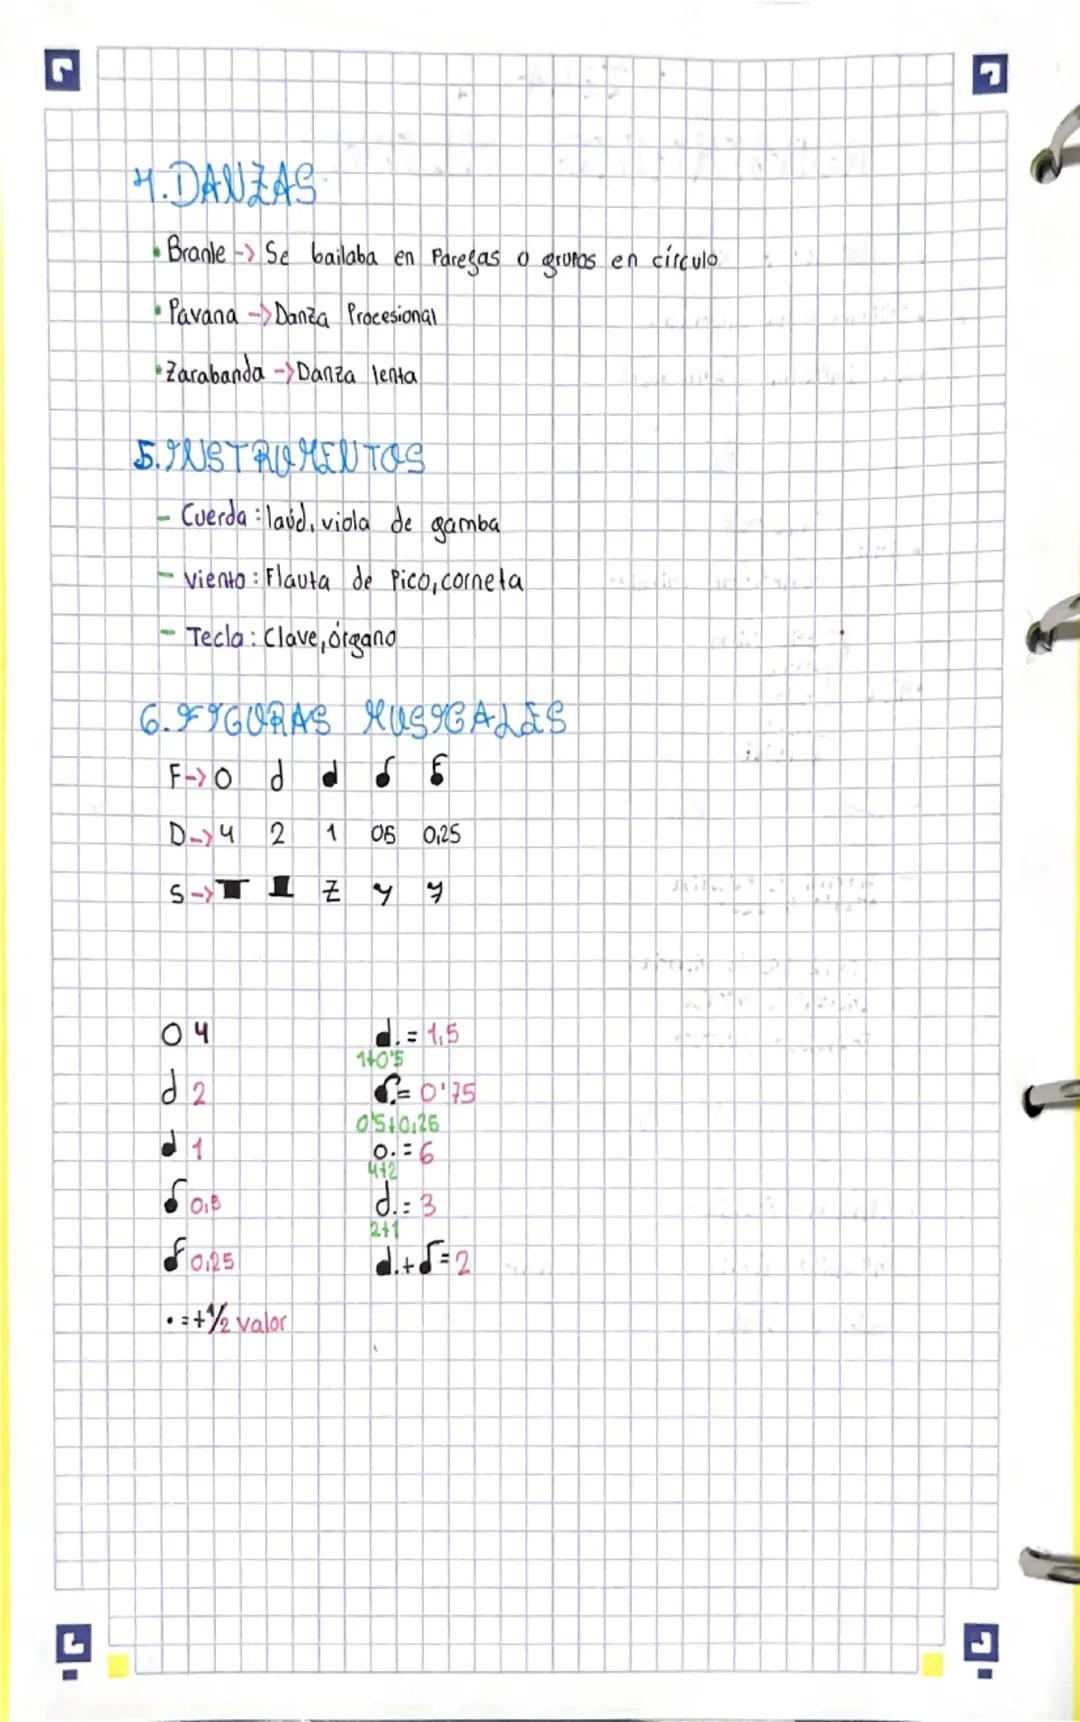 4. DANZAS
• Branle -> Se bailaba en Paregas o grupos en círculo
• Pavana -> Danza Procesional
• Zarabanda -> Danza lenta
5. INSTRUMENTOS
- Cuerda: laúd, viola de gamba
- viento: Flauta de Pico, corneta
- Tecla: Clave, órgano
6. FIGURAS MUSICALES
F->
D-> 4 2 1 05 0,25
S->
4
2
1
0,5
0,25
• = + 1/2 valor
. = 1,5
1+0'5
. = 0'75
0'5+0,25
. = 6
4+2
. = 3
2+1
. + = 2